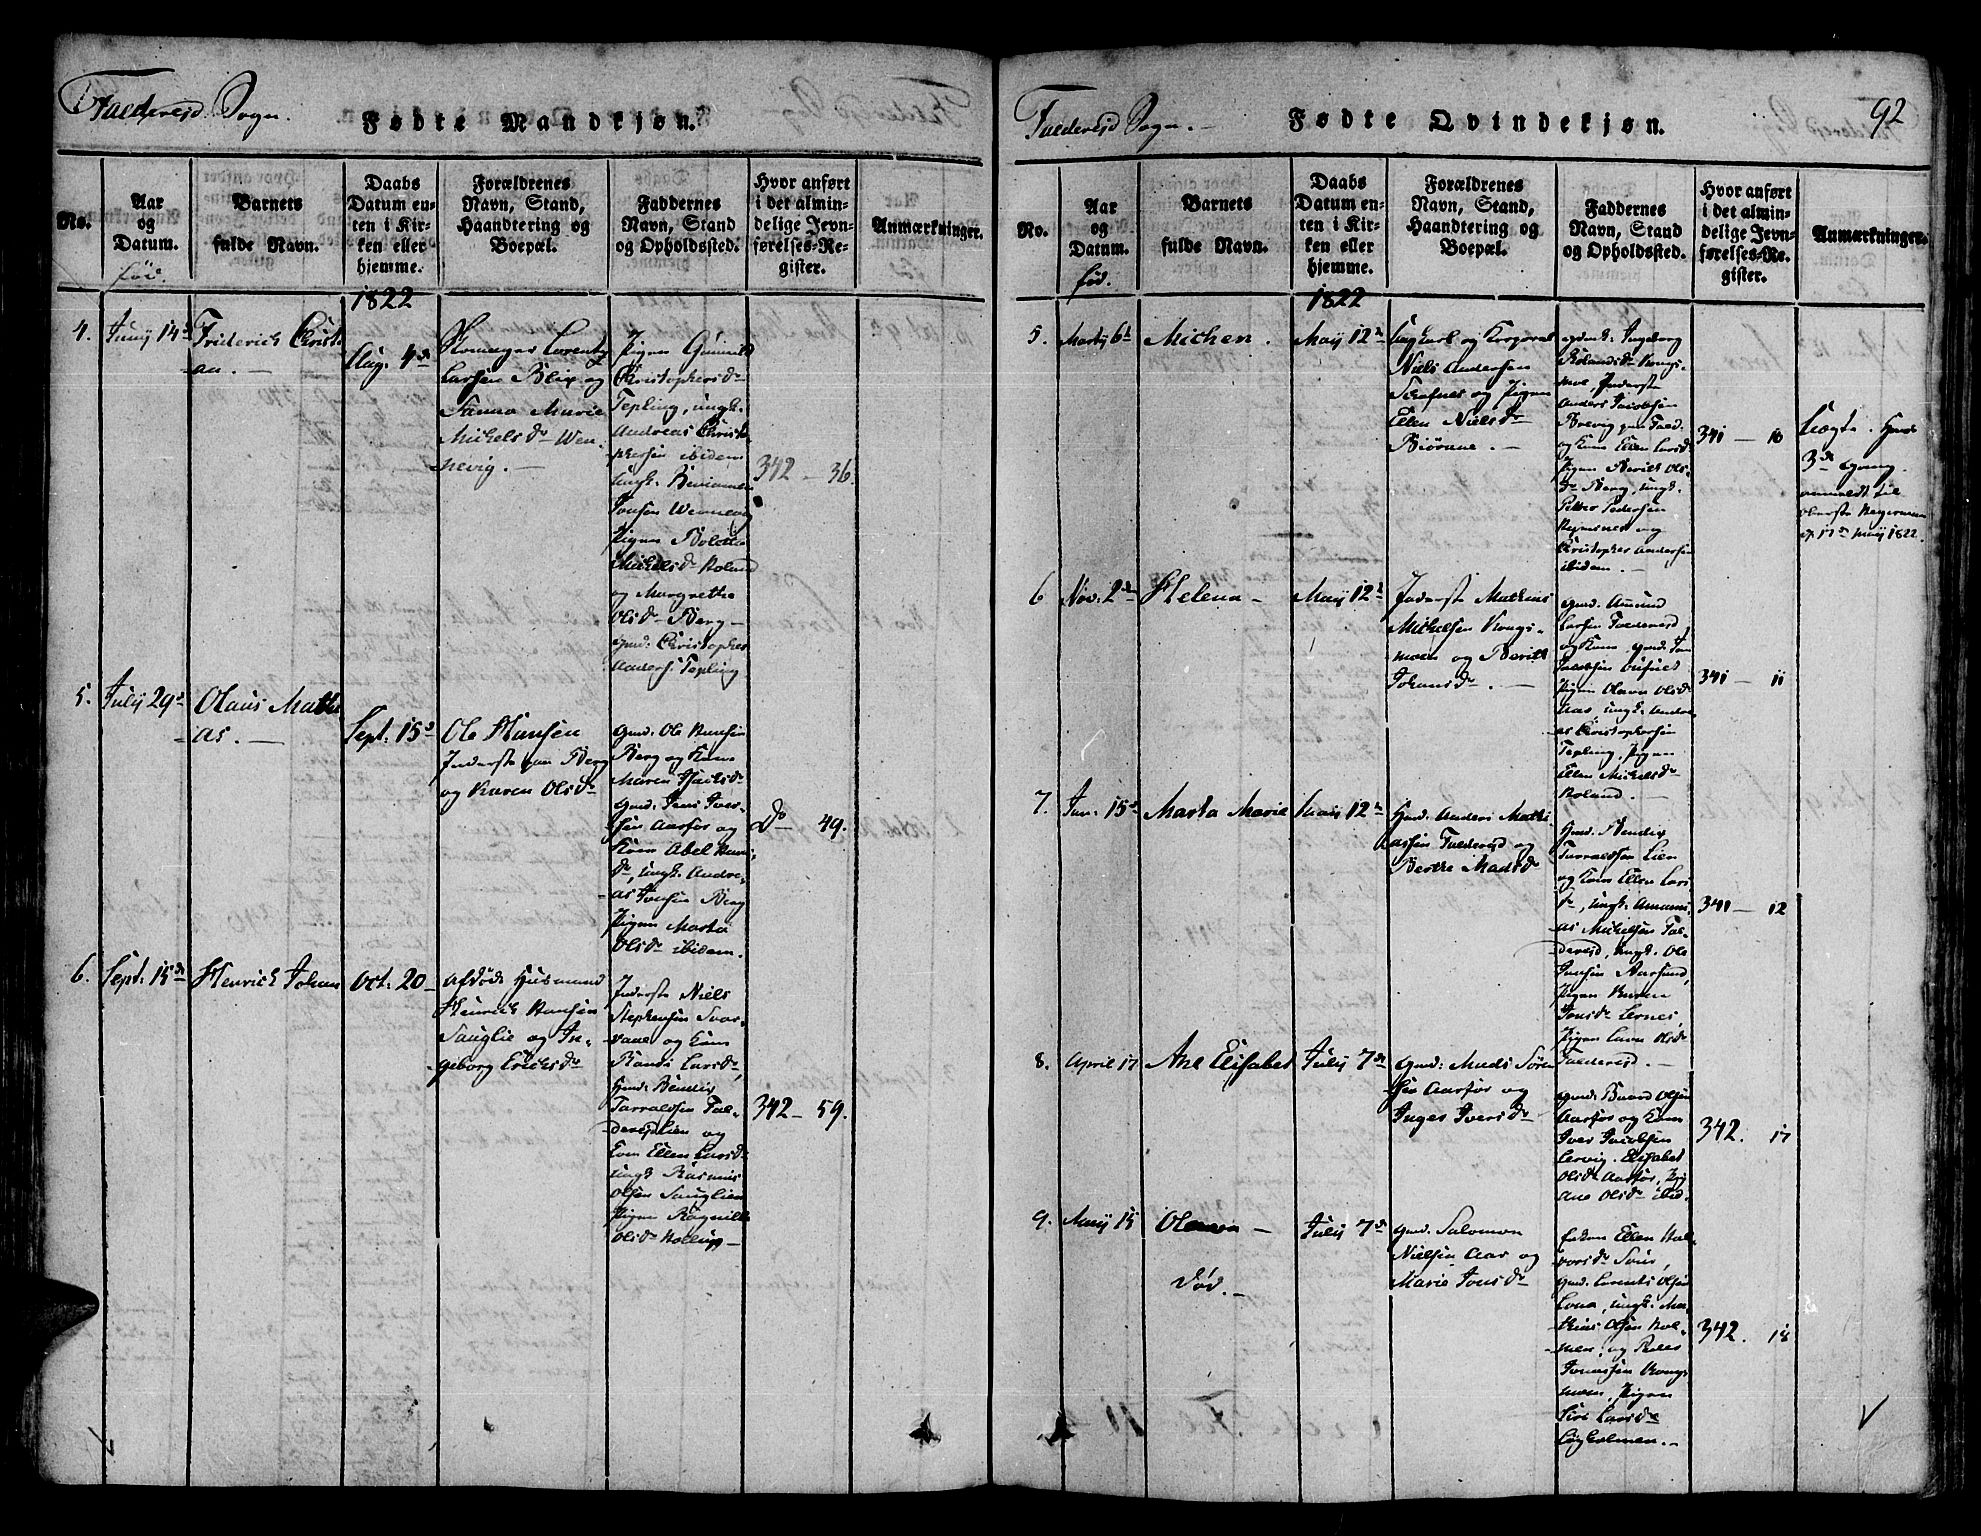 Falderejd Sogn.
Fødte Mandkjøn.
No.
Aar
og
Datum.
fød.
Barnets
fulde Navn.
Daabs
Datum en-
ten i Kir-
ken eller
hjemme.
Forældrenes
Navn, Stand,
Haandtering og
Boepæl.
Faddernes
Navn, Stand
og Opholdssted.
Hvor anført
i det almin-
delige Jevn-
førelses-Re-
gister.
Anmærkninger.
1822
4. Juny 14d
Friderich Christi
an. -
Aug. 4de
Lorentz
Larsen Blix og
Marie
Michelsdr Wen-
nevig. -
Pigen Gunnild
Christophersdr
Tepling, ungk.
Andreas Christo
phersen ibidem
ungk. Beniamin
Jonsen Wennevig
Pigen Bolette
Michelsdr Roland
og Margrethe
Olsdr Berg -
gmd. Christopher
Anders. Tepling
342 - 36.
5. July 29d
Olaus Mathi
as. -
Sept: 15d
Ole Hansen
Inderste paa Berg
og Karen Olsdr
gmd: Ole Hansen
Berg og Kone
Maren
gmd: Jens Iver-
sen Aarfor og
Kone Abel Hans-
dr, ungk. Andre-
as Jonsen Berg
Pigen Marta
Olsdr ibidem.
Do 49.
6. Sept: 15de
Henrich Johan
Oct: 20
afdøde Husmand
Henrich Hansen
Sauglie og In-
geborg Erichsdr
Inderste Niels
Stephensen Svar-
vane og Kone
Randi Larsdr,
gmd: Bendix
Tarraldsen Fal-
derejdlien og
Kone Ellen Larsdr
ungk. Rasmus
Olsen Sauglien
Pigen Ragnild
Olsdr Kollup -
342 - 59.
Falderejd Sogn. -
Fødte Qvindekjøn.
92
No.
Aar
og
Datum.
fød.
Barnets
fulde Navn.
Daabs
Datum en-
ten i Kir-
ken eller
hjemme.
Forældrenes
Navn, Stand,
Haandtering og
Boepæl.
Faddernes
Navn, Stand
og Opholdssted.
Hvor anført
i det almin-
delige Jevn-
førelses-Re-
gister.
Anmærkninger.
1822
5. Marty 6t
Michen.
Maij 12te
Ungkarl og Korporal
Niels Andersen
og Pigen
Ellen Nielsdr
Biørane. -
gmk: Ingeborg
Rolandsdr Kongs-
moe, Inderste
Anders Jacobsen
Brevig paa Fald.
og Kone Ellen Larsdr
Pigen Berith Ols-
dr Berg, ungk.
Petter Pedersen
og
Christopher Andersen
ibidem. -
341 - 10
Uægte.
3de gang.
anmeldt til
oberste
17de Maij 1822.
6 Nov. 2den
Helena -
Maij 12te
Inderste Mathias
Michelsen Kongs-
moen og Berith
Johansdr. -
gmd: Amund
Larsen Falderejd
og Kone, gmd: Jon
Jacobsen
Pigen Olava Olsdr
Aas, ungk. Andre-
as Christophersen
Tepling, Pigen
Ellen Michelsdr
Roland. -
341 - 11
7. Jan: 15d
Marta Marie
Maij 12te
Gmd: Anders Mathi-
assen Falderejd og
Berthe Madsdr
gmd: Bendix
Tarraldsen Lien
og Kone Ellen Lars-
dr, ungk:
Michelsen Fal-
derejd, ungk. Ole
Jansen Aarsund,
Pigen Karen
Jonsdr Lernes
Pigen Olsdr
Falderejd. -
341 - 12
8. April 17
Ane Elisabet
July 7de
gmd: Mads Søren
sen Aarfor og
Inger Iversdr
gmd: Baard Olsen
Aarfor og Kone
Iver Jacobsen
Lervig. Elisabet
Olsdr Aarfor, Pig:
Ane Olsdr ibid.
342. 17
9. Maij 15
Olava -
død. -
July 7de
gmd: Salomon
Nielsen Aas og
Marie Jonsdr
Enken Ellen Hal-
vorsdr
gmd: Lorents Olsen
Lona, ungk. Ma-
thias Olsen Hol-
men, og Peder
Jonassen Kongs-
moen, Pigen
Siri Larsdr
Løgholmen. -
342. 18